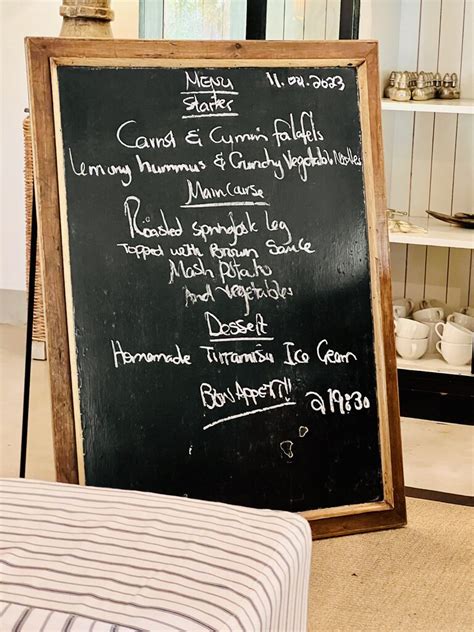 Menu 11.04.2023
Starter
Carrot & Cumin falafels
Lemony hummus & Crunchy Vegetable Noodles
Main Course
Roasted springbok leg
Topped with Brown Sauce
Mash Potato
And vegetables
Dessert
Homemade Tirramisu Ice Cream
Bon Appetit!!
@ 19:30